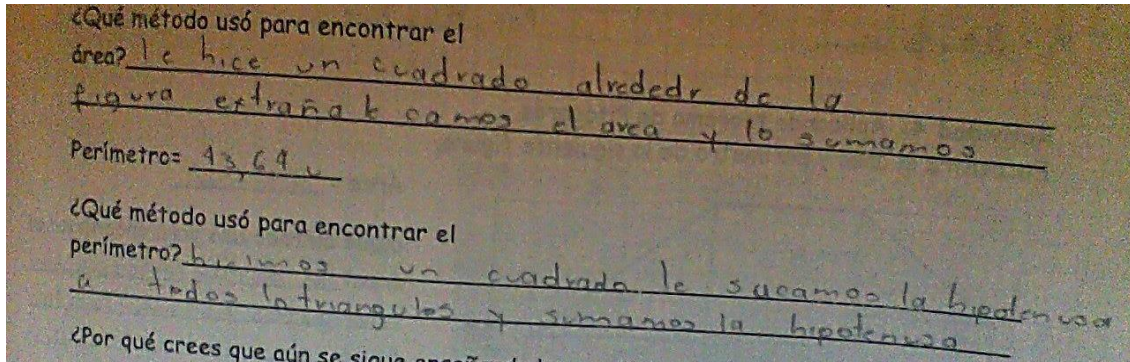 ¿Qué método usó para encontrar el
área? le hice un cuadrado alrededr de la
figura extraña camos el area y lo sumamos
Perímetro= 43,64
¿Qué método usó para encontrar el
perímetro? hicimos un cuadrado le sacamos la hipotenusa
a todos lo triangulos y sumamos la hipotenusa
¿Por qué crees que aún se sigue